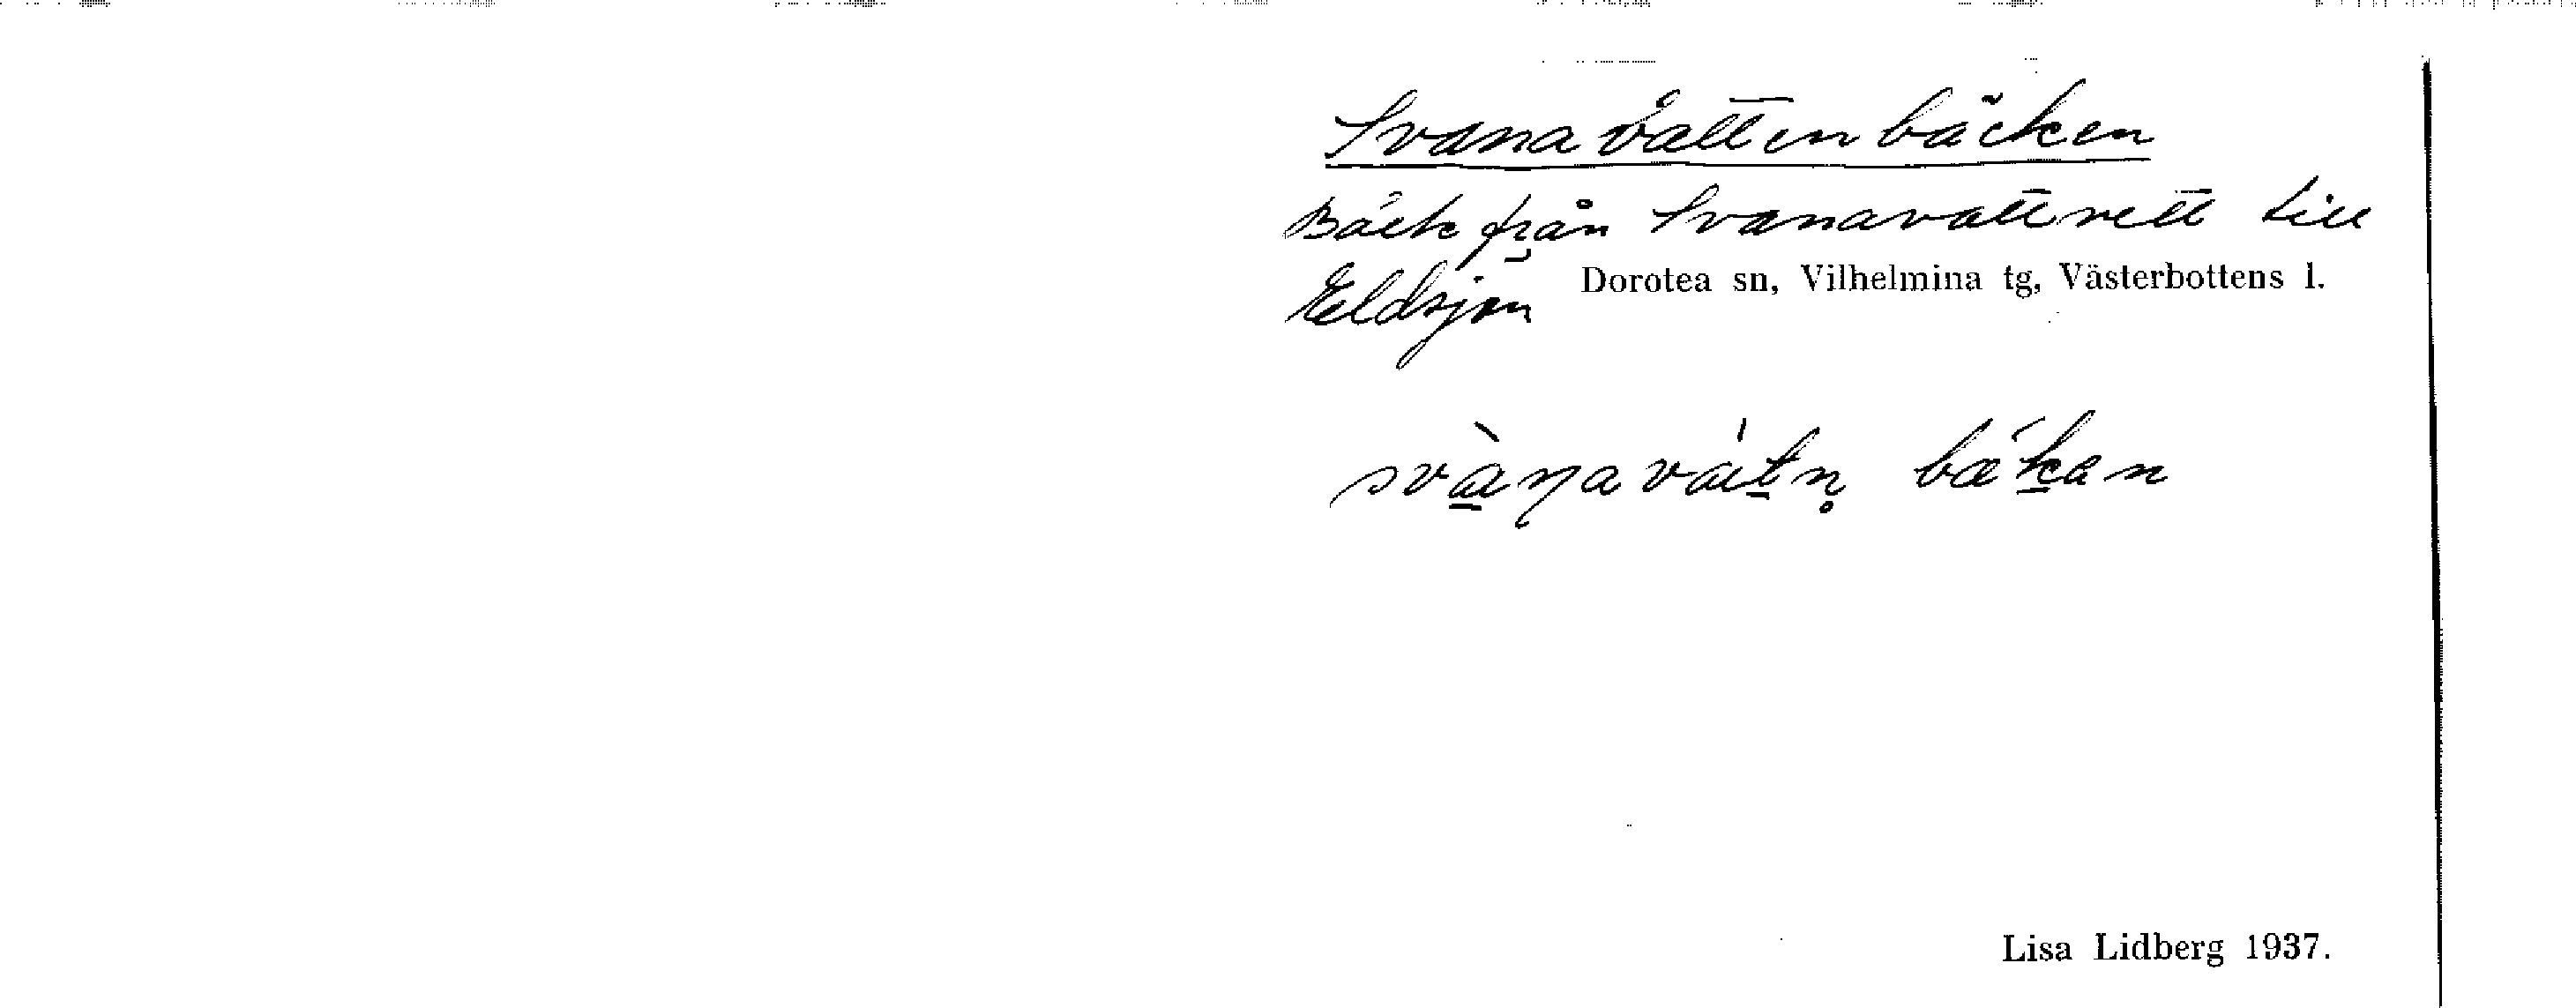 Svanavattenbäcken
Bäck från Svanavattnett till
Eldsjön
Dorotea sn, Vilhelmina tg, Västerbottens l.
svàŋavátn̥ bækan
Lisa Lidberg 1937.